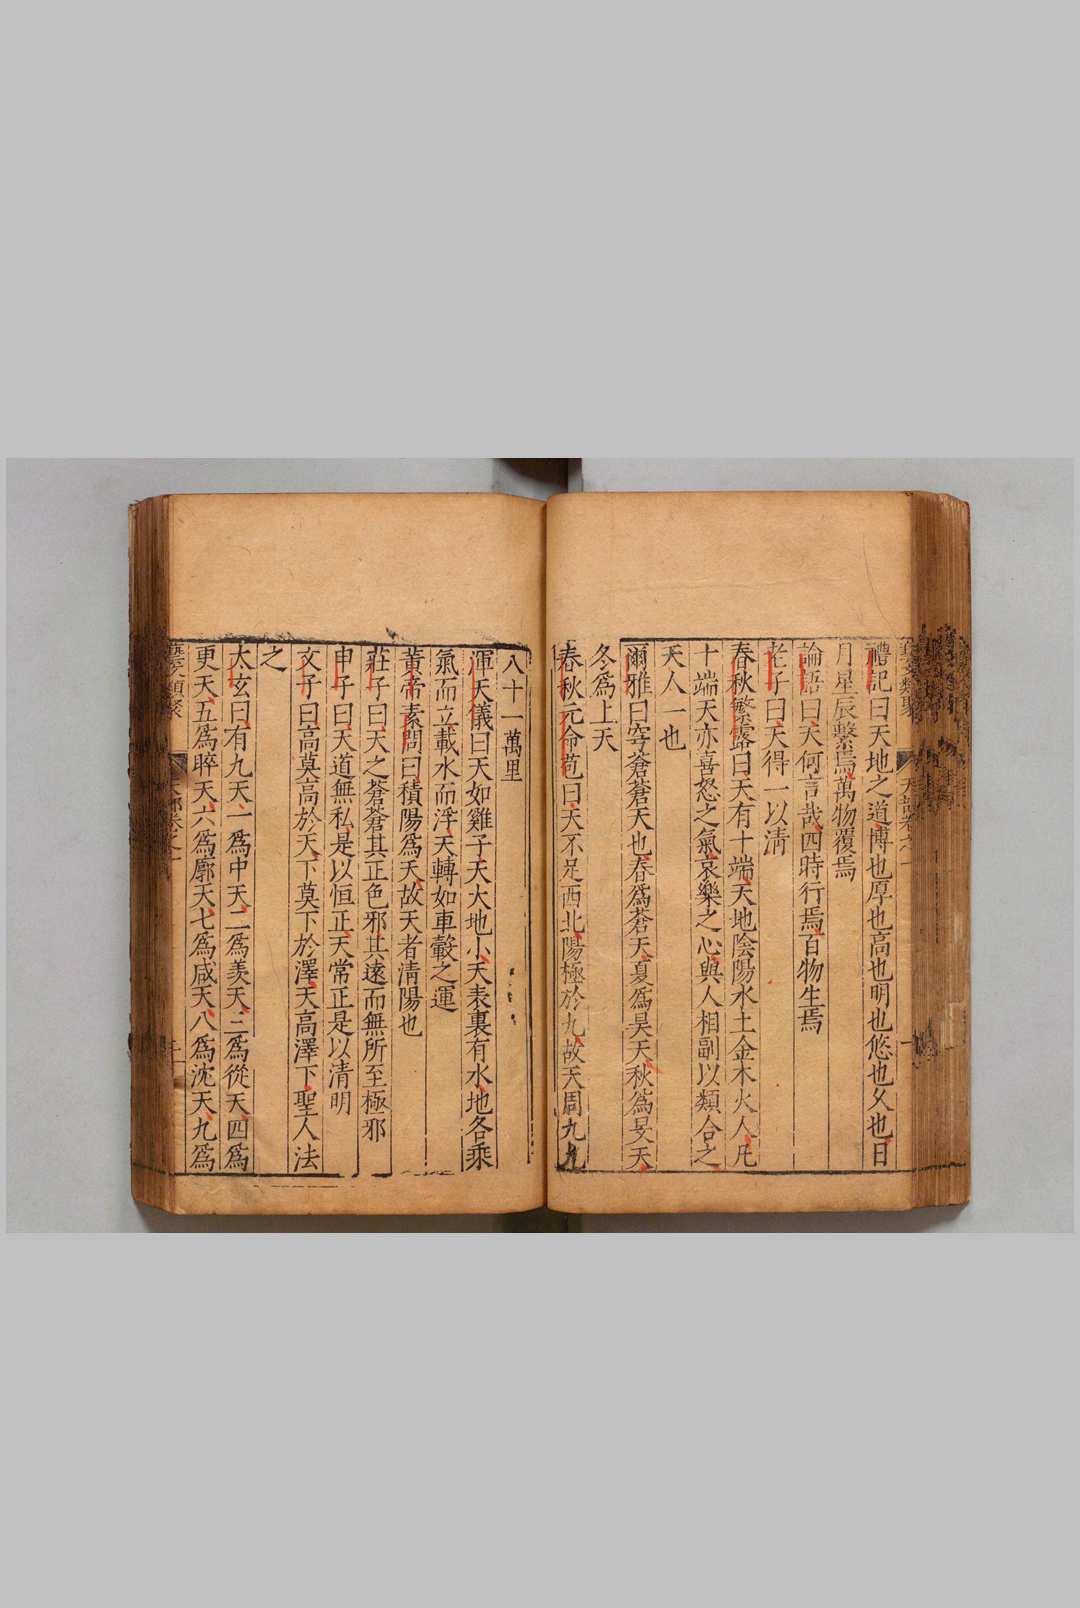 禮記曰天地之道博也厚也高也明也悠也久也日
月星辰繫焉萬物覆焉
論語曰天何言哉四時行焉百物生焉
老子曰天得一以清
春秋繁露曰天有十端天地陰陽水土金木火人凡
十端天亦喜怒之氣哀樂之心與人相副以類合之
天人一也
爾雅曰穹蒼蒼天也春爲蒼天夏爲昊天秋爲旻天
冬爲上天
春秋元命苞曰天不足西北陽極於九故天周九九
八十一萬里
渾天儀曰天如雞子天大地小天表裏有水地各乘
氣而立載水而浮天轉如車轂之運
黃帝素問曰積陽爲天故天者清陽也
莊子曰天之蒼蒼其正色邪其遠而無所至極邪
申子曰天道無私是以恒正天常正是以清明
文子曰高莫高於天下莫下於澤天高澤下聖人法
之
太玄曰有九天一爲中天二爲羨天三爲從天四爲
更天五爲睟天六爲廓天七爲咸天八爲沈天九爲